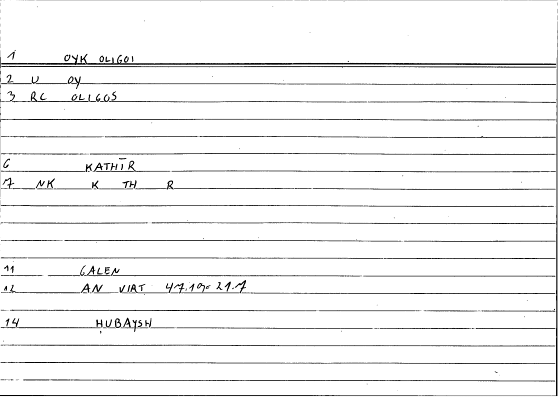 1 OYK OLIGOI
2 U OY
3 RC OLIGOS
6 KATHĪR
7 NK K TH R
11 GALEN
12 AN VIRT 47.19= 21.7
14 ḤUBAYSH